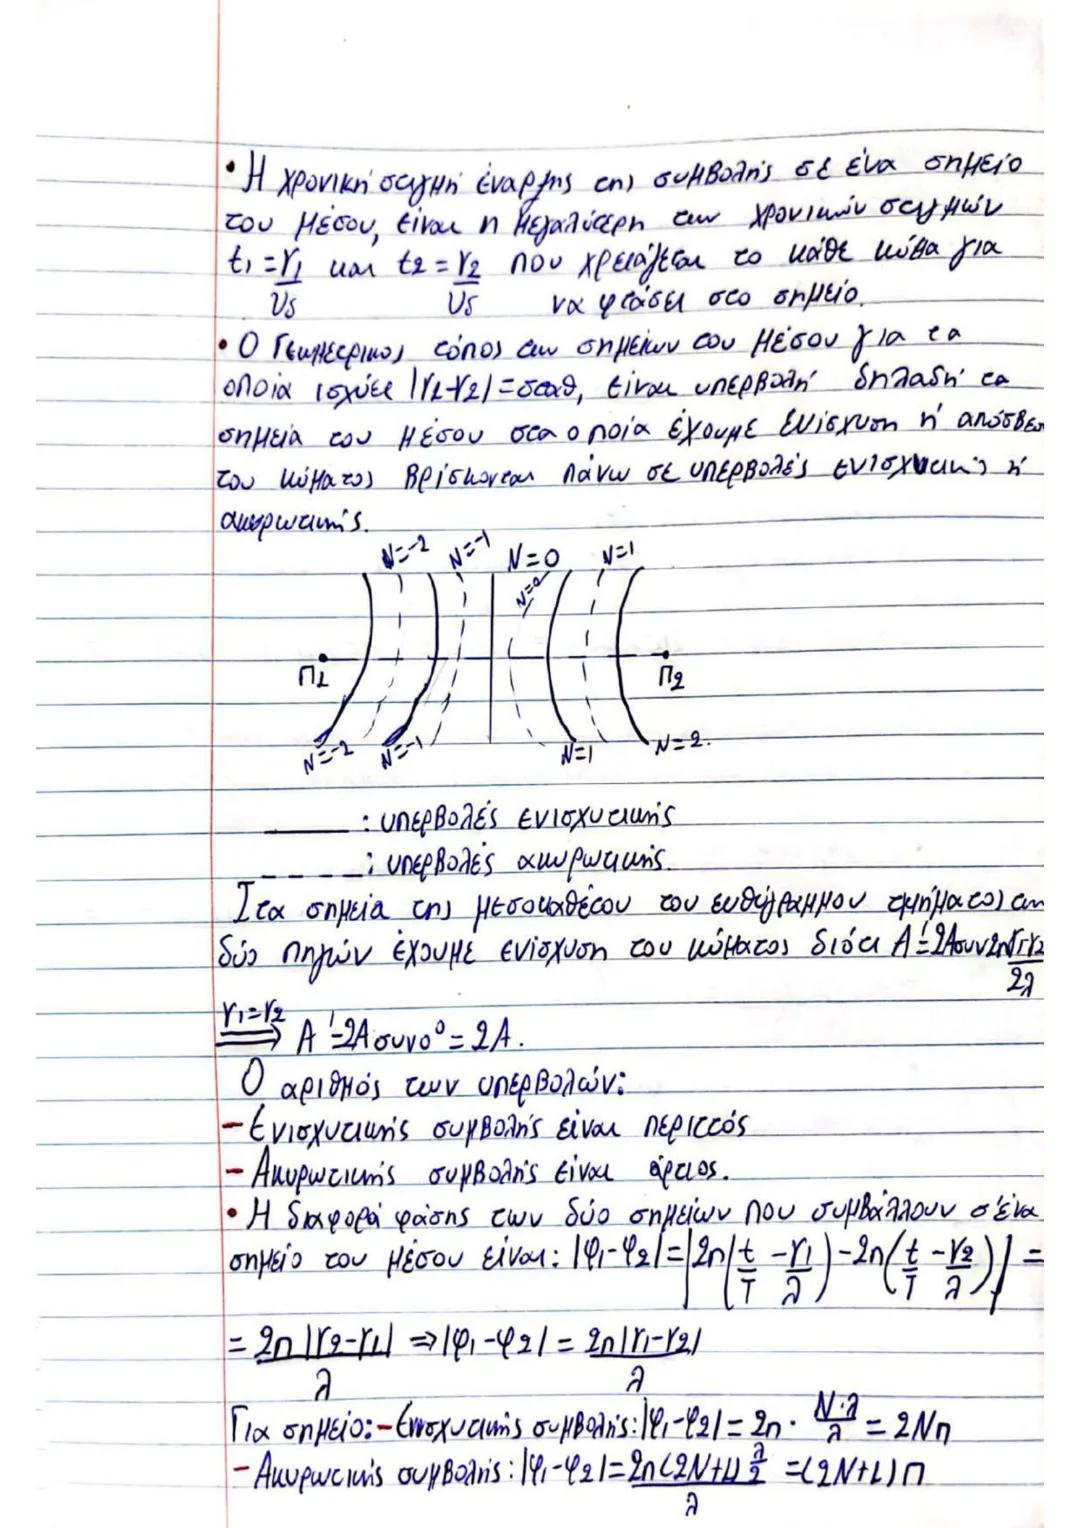 • Η χρονική στιγμή έναρξης της συμβολής σε ένα σημείο
του μέσου, είναι η μεγαλύτερη των χρονικών στιγμών
t₁ = r₁/υs και t₂ = r₂/υs που χρειάζεται το κάθε κύμα για
να φτάσει στο σημείο.
• Ο Γεωμετρικός τόπος των σημείων του μέσου για τα
οποία ισχύει |r₁-r₂|=σταθ, είναι υπερβολή δηλαδή τα
σημεία του μέσου στα οποία έχουμε ενίσχυση ή απόσβεσ
του κύματος βρίσκονται πάνω σε υπερβολές ενισχυτικής ή
ακυρωτικής.
N=-2 N=-1 N=0 N=1
N=0
Π1 Π2
N=-2 N=-1 N=1 N=2.
: υπερβολές ενισχυτικής
: υπερβολές ακυρωτικής.
Στα σημεία της μεσοκαθέτου του ευθύγραμμου τμήματος των
δύο πηγών έχουμε ενίσχυση του κύματος διότι A'=2Aσυν2π(r₁-r₂)/2λ
r₁=r₂ ⟹ A'=2Aσυν0°=2A.
Ο αριθμός των υπερβολών:
- Ενισχυτικής συμβολής είναι περιττός
- Ακυρωτικής συμβολής είναι άρτιος.
• Η διαφορά φάσης των δύο σημείων που συμβάλλουν σ'ένα
σημείο του μέσου είναι: |φ₁-φ₂|=|2π(t/T - r₁/λ) - 2π(t/T - r₂/λ)| =
= 2π|r₂-r₁|/λ ⇒ |φ₁-φ₂| = 2π|r₁-r₂|/λ
Για σημείο: - Ενισχυτικής συμβολής: |φ₁-φ₂| = 2π · N·λ/λ = 2Νπ
- Ακυρωτικής συμβολής: |φ₁-φ₂| = 2π(2N+1)λ/2/λ = (2N+1)π